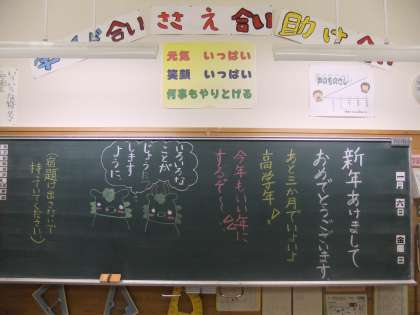 合い ささえ合い 助け
元気 いっぱい
笑顔 いっぱい
何事もやりとげる
声のものさし
一月 六日 金曜日
新年あけまして
おめでとうございます
あと三か月でいよいよ
高学年!
今年もいい年に
するぞ~
いろいろな
ことが
じょうたつ
しますように。
(宿題は出さないで
持っていてください)